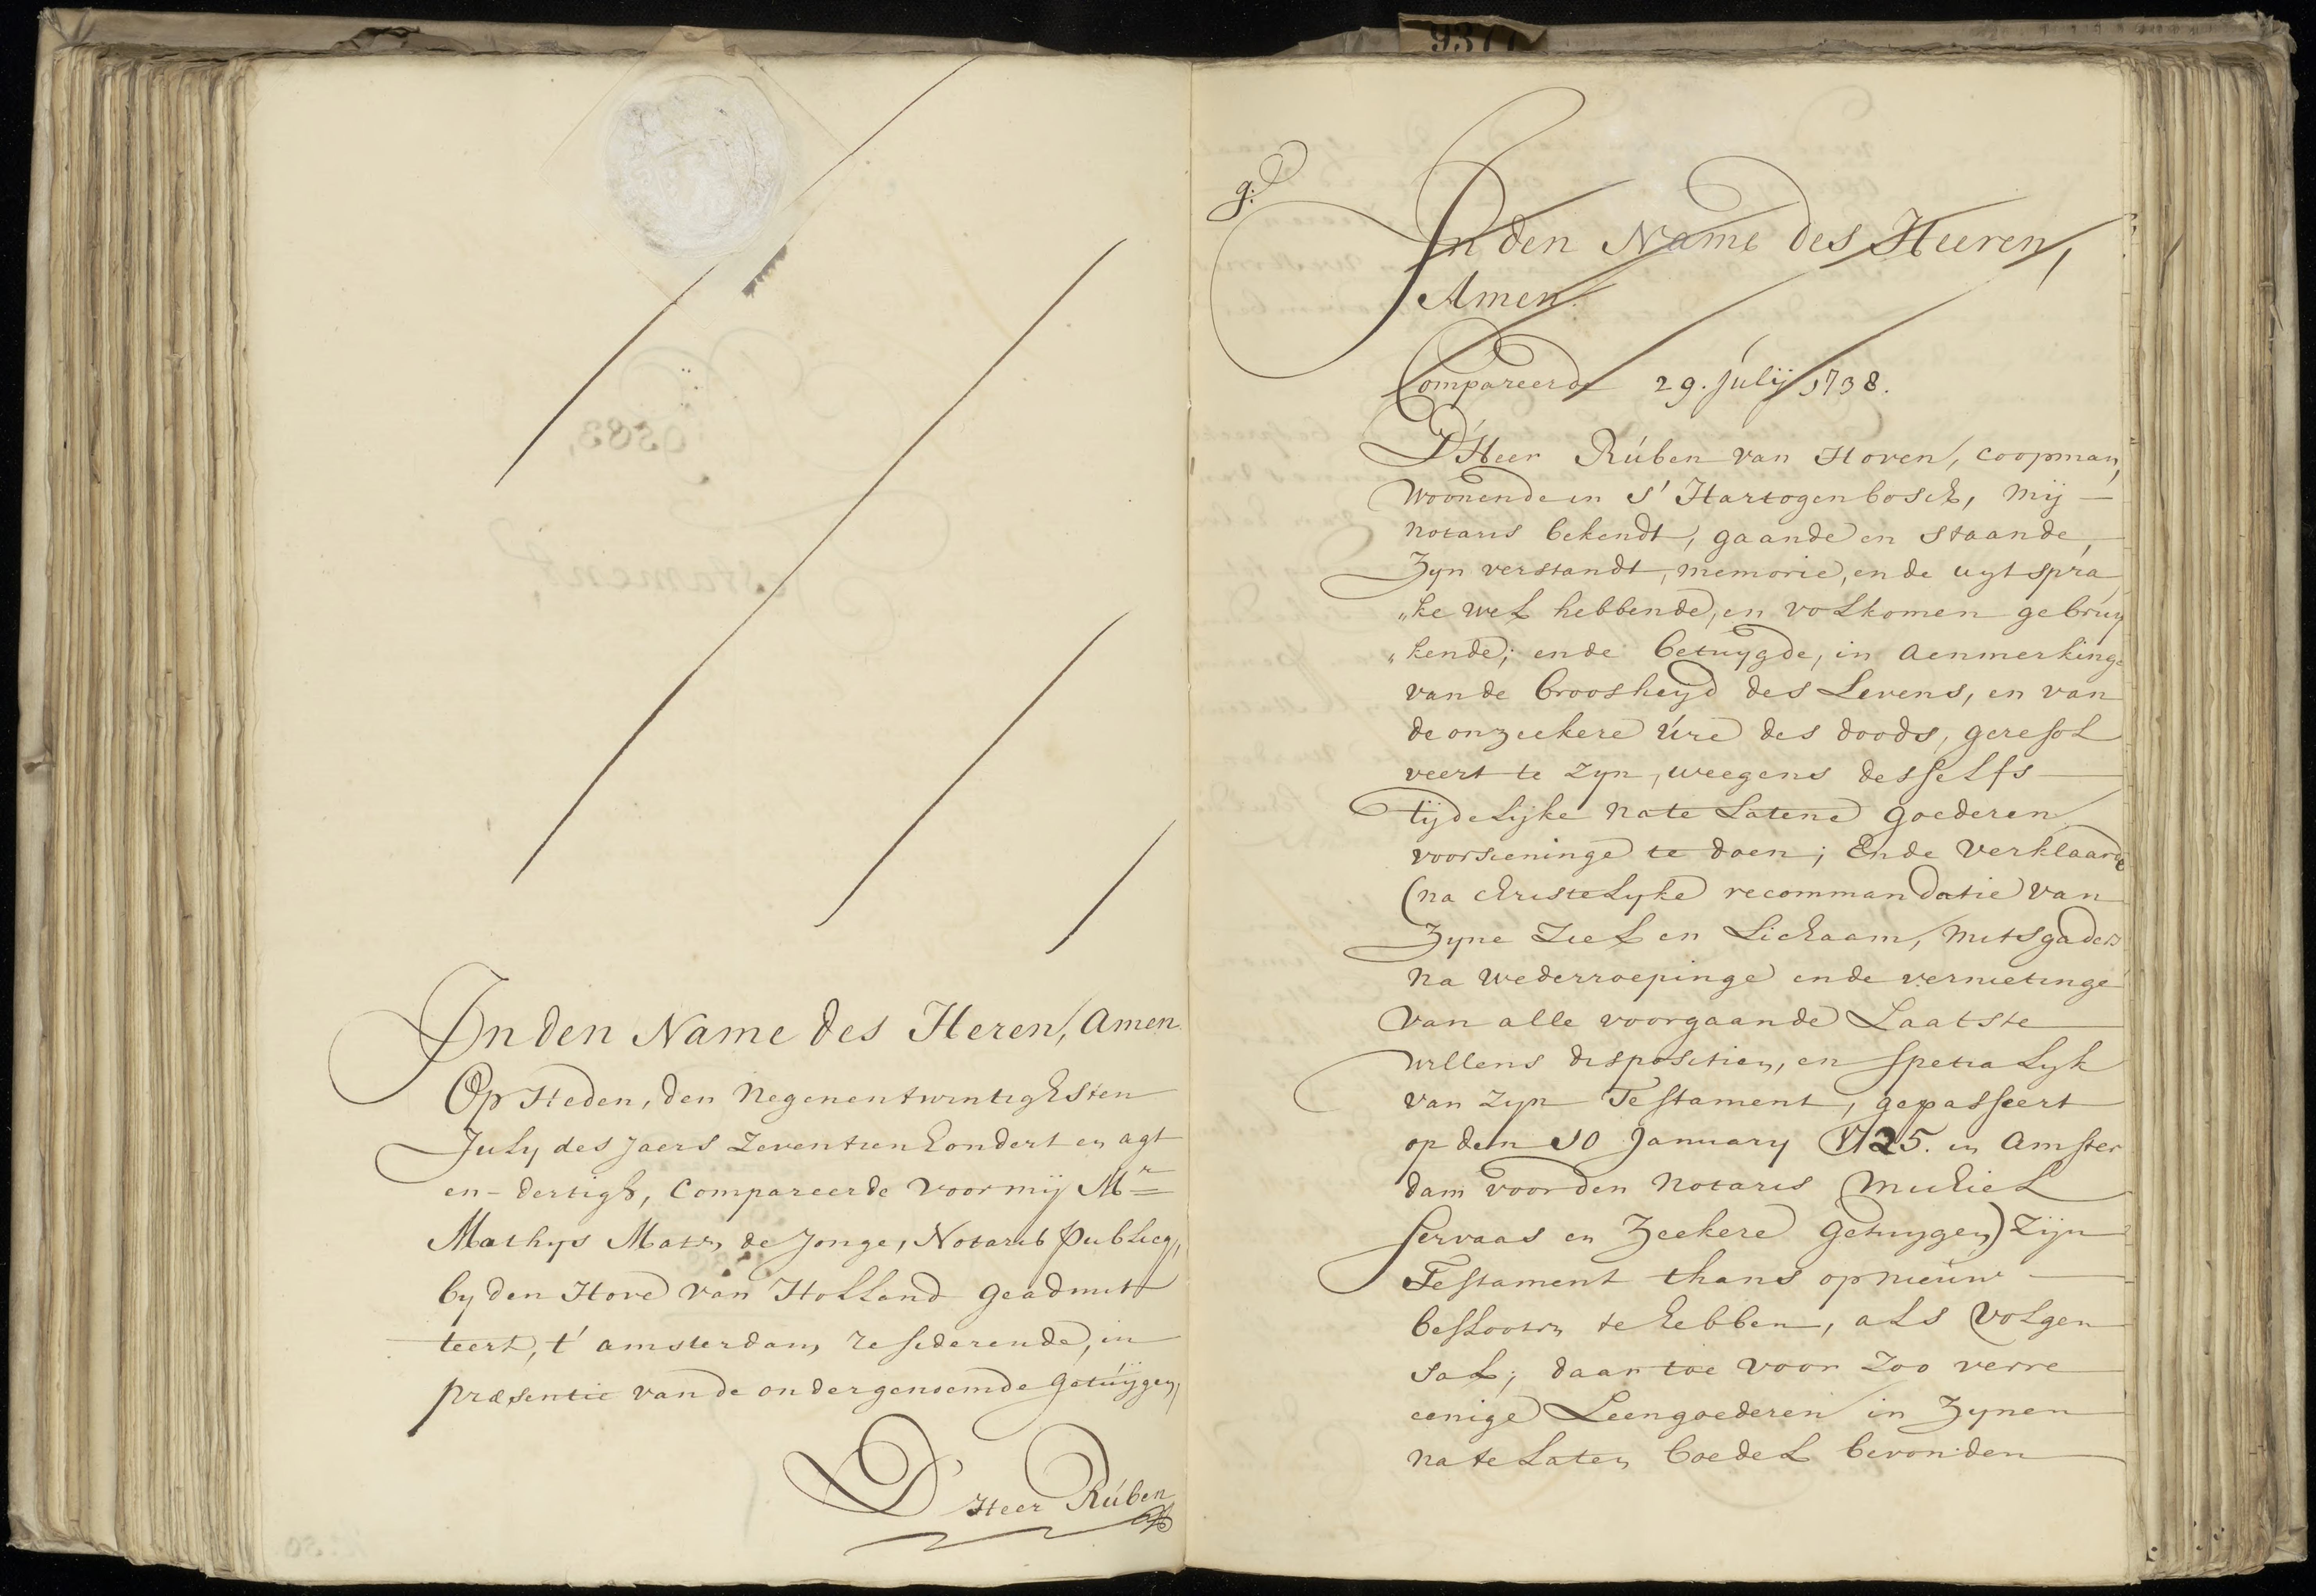 In den Name des Heren, Amen
Op Heden, den Negenentwintighsten
July des Jaers Zeventien hondert en agt
en-dertigh, Compareerde voor mij Mr
Mathys Maten de Jonge, Notaris Publicq,
by den Hove van Holland geadmit
teert, t' amsterdam resiederende, in
præsentie van de ondergenoemde getuijgen,
D' Heer Rúben
9377
g:
In den Name des Heeren,
Amen.
Compareerde 29. Julij 1738.
D'Heer Rúben van Hoven, coopman,
woonende in s' Hartogenbosch, mij
notaris bekendt, gaande en staande,
Zyn verstandt, memorie, ende uyt spra
„ke wel hebbende, en volkomen gebruy
„kende; ende betuygde, in aenmerkinge
van de broosheyd des Levens, en van
de onzeekere úre des doods, geresol
veert te zyn, weegens desselfs
tijdelijke nate Latene goederen
voorsieninge te doen; Ende verklaarde
(na christelyke recommandatie van
Zyne Ziel en Lichaam, mitsgaders
na wederroepinge ende vernietinge
van alle voorgaande Laatste
willens dispositien, en spetialyk
van zyn Testament, gepasseert
op den 10 January 1725. in Amster
dam voor den Notaris Michiel
Servaas en Zeekere getuygen) Zijn
Testament thans op nieúw
beslooten te hebben, als volgen
sal; daar toe voor zoo verre
eenige Leengoederen in Zynen
nate Laten boedel bevonden